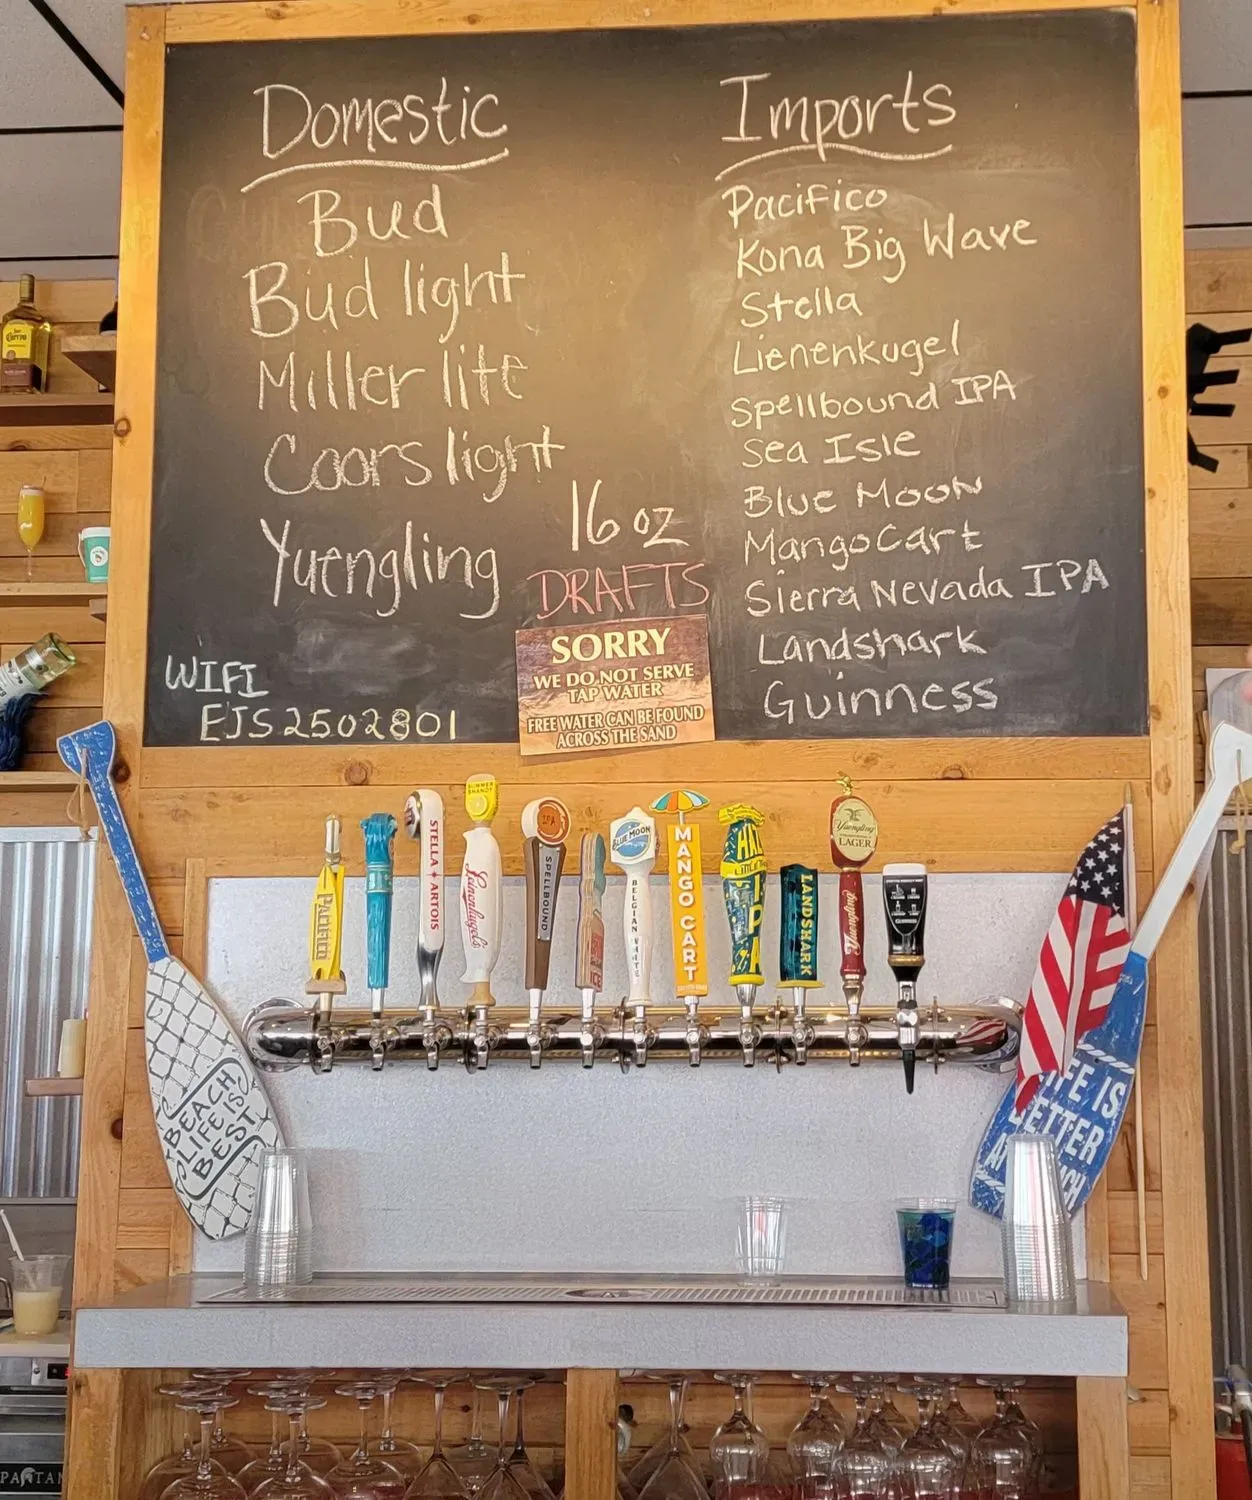 Domestic
Bud
Bud light
Miller lite
Coors light
Yuengling
16 oz
DRAFTS
WIFI
EJS2502801
Imports
Pacifico
Kona Big Wave
Stella
Lienenkugel
Spellbound IPA
Sea Isle
Blue Moon
MangoCart
Sierra Nevada IPA
Landshark
Guinness
SORRY
WE DO NOT SERVE
TAP WATER
FREE WATER CAN BE FOUND
ACROSS THE SAND
PACIFICO
STELLA ARTOIS
SUMMER
SHANDY
Leinenkugel's
IPA
SPELLBOUND
ICE
BLUE MOON
BELGIAN WHITE
MANGO CART
LITTLE THING
IPA
LANDSHARK
Yuengling
LAGER
Yuengling
GUINNESS
BEACH
LIFE IS
BEST
FE IS
ETTER
CH